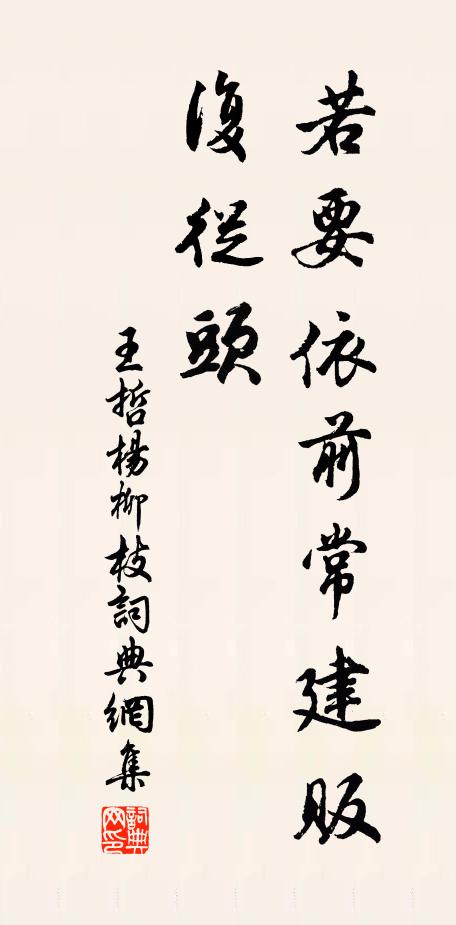 若要依前常建販
復從頭
王哲楊柳枝詞典網集
詞典網印